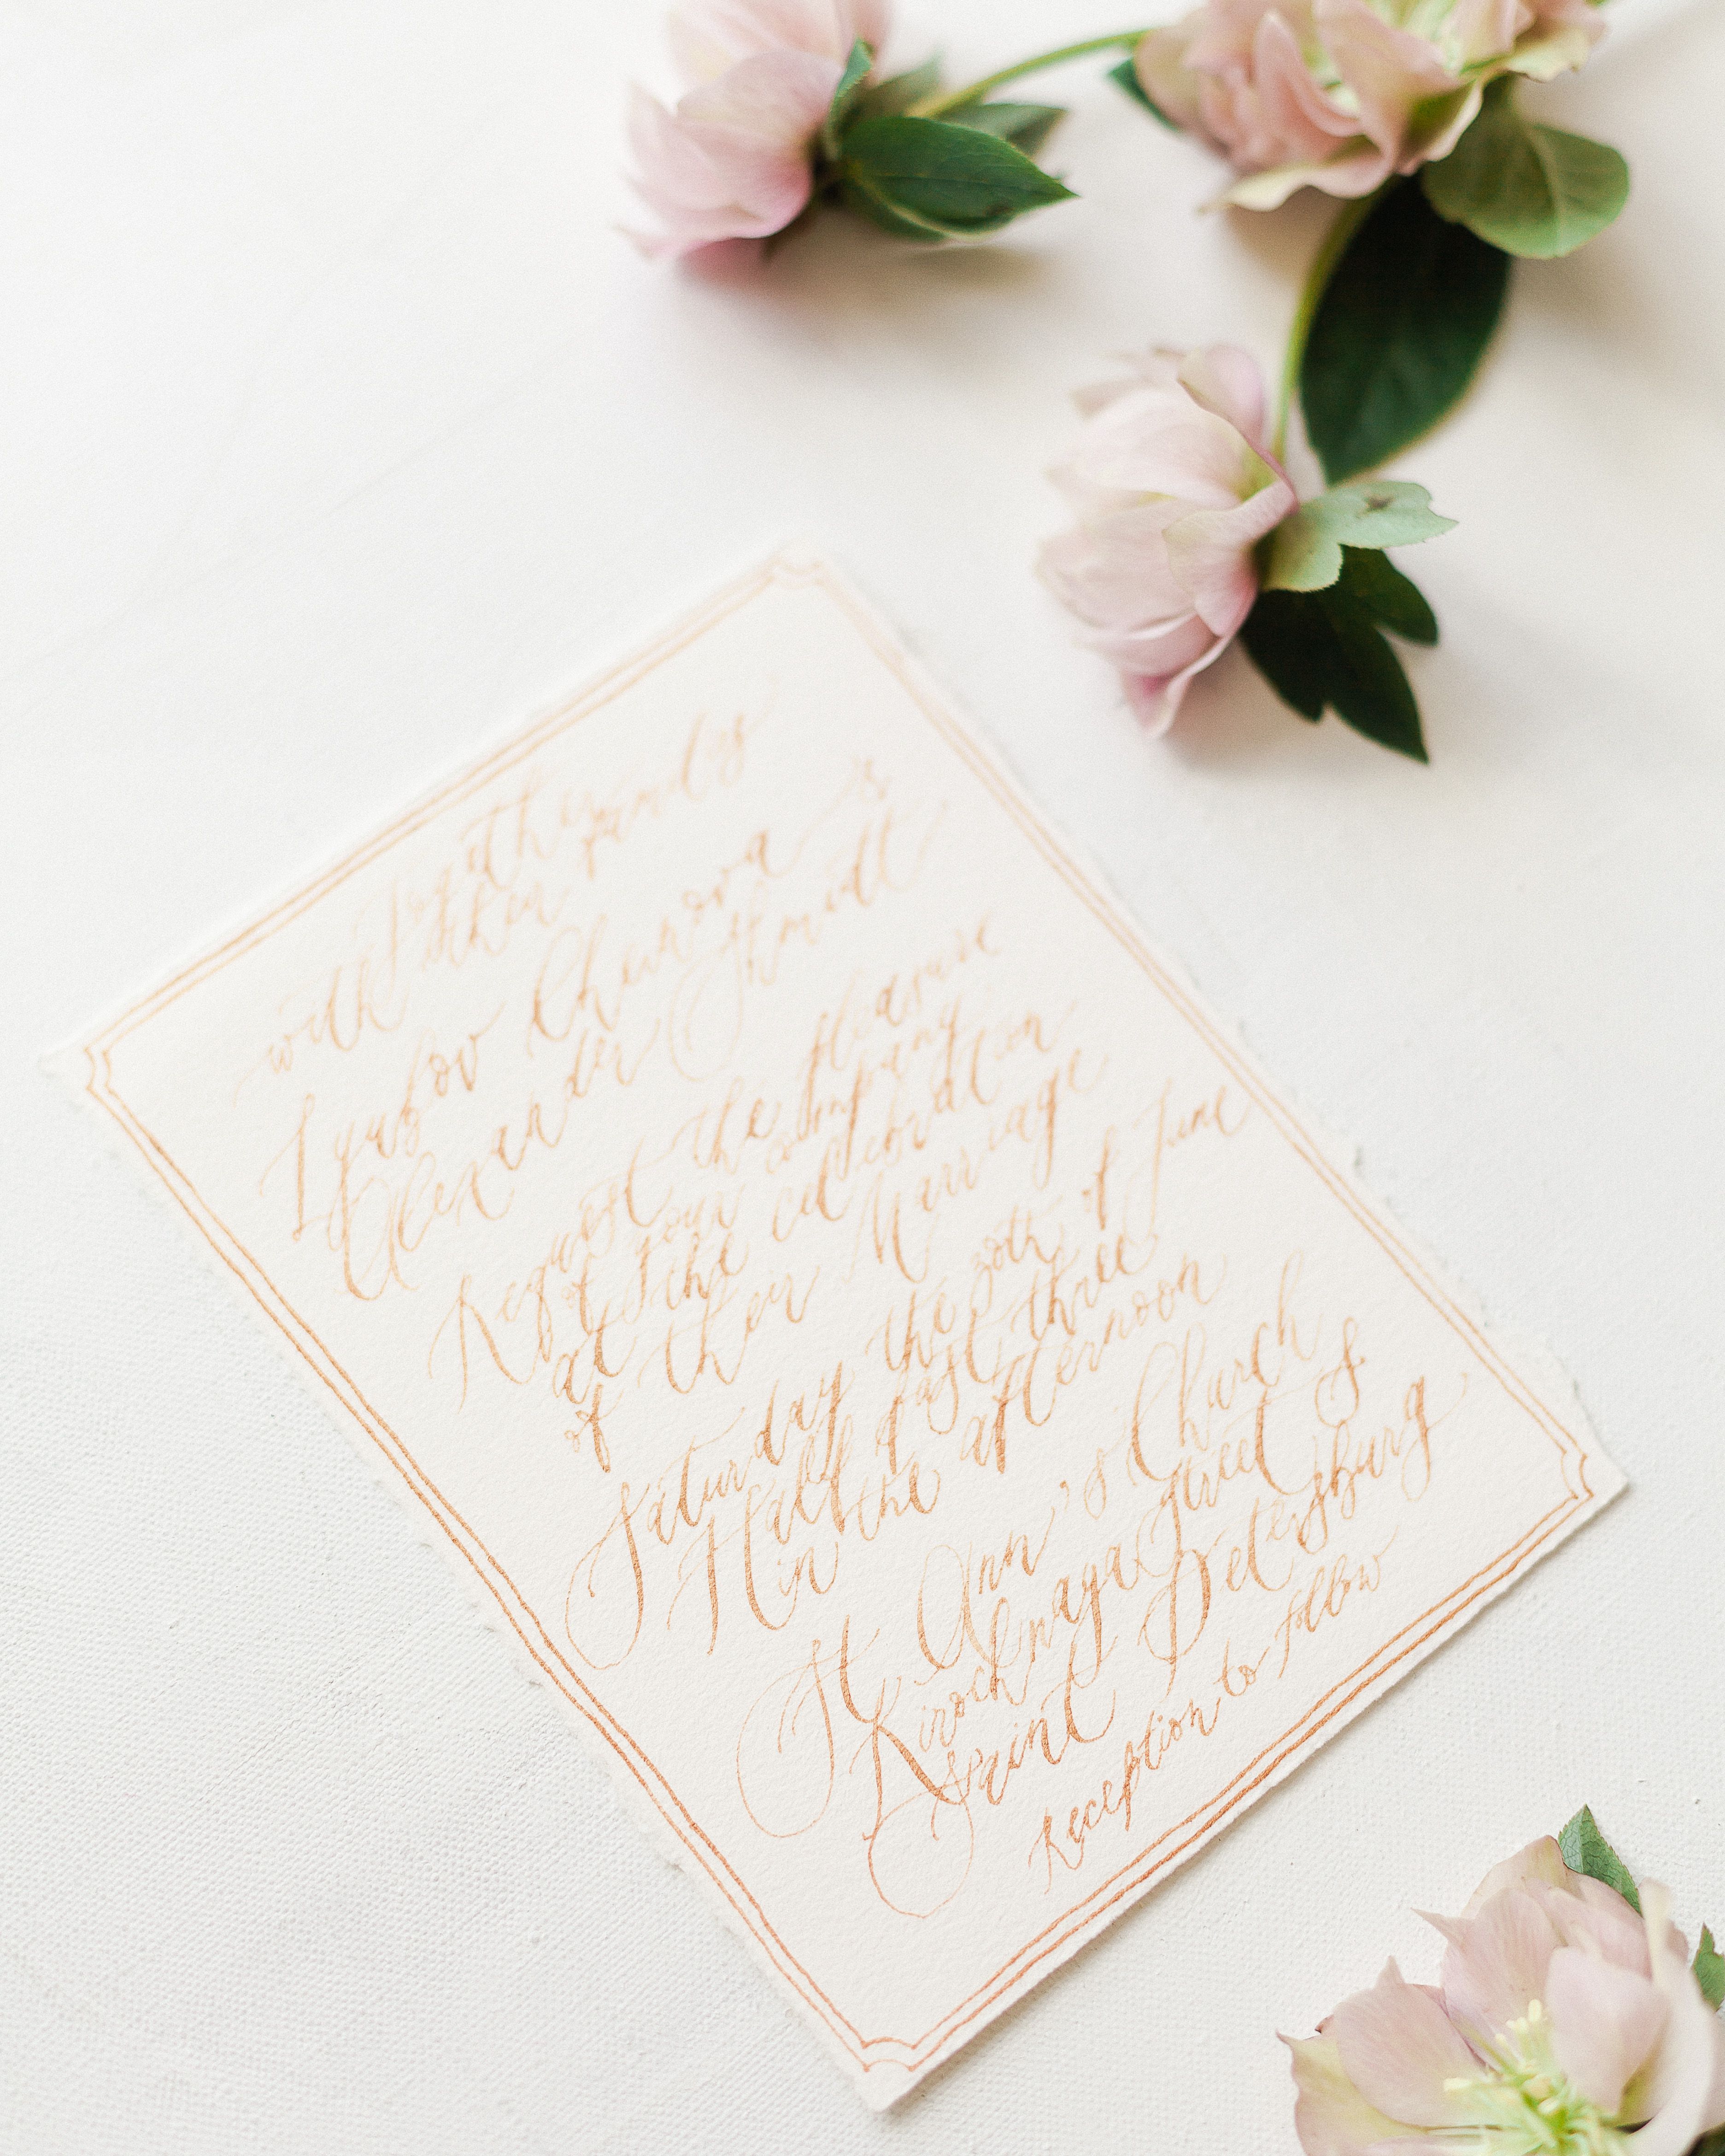 Together
with their families
Lyubov Chernova &
Alexander Shmidt
Request the pleasure
of your company
at the celebration
of their Marriage
Saturday the 20th of June
Half past three
in the afternoon
St Ann's Church
Kirochnaya Street 8
Saint Petersburg
Reception to follow